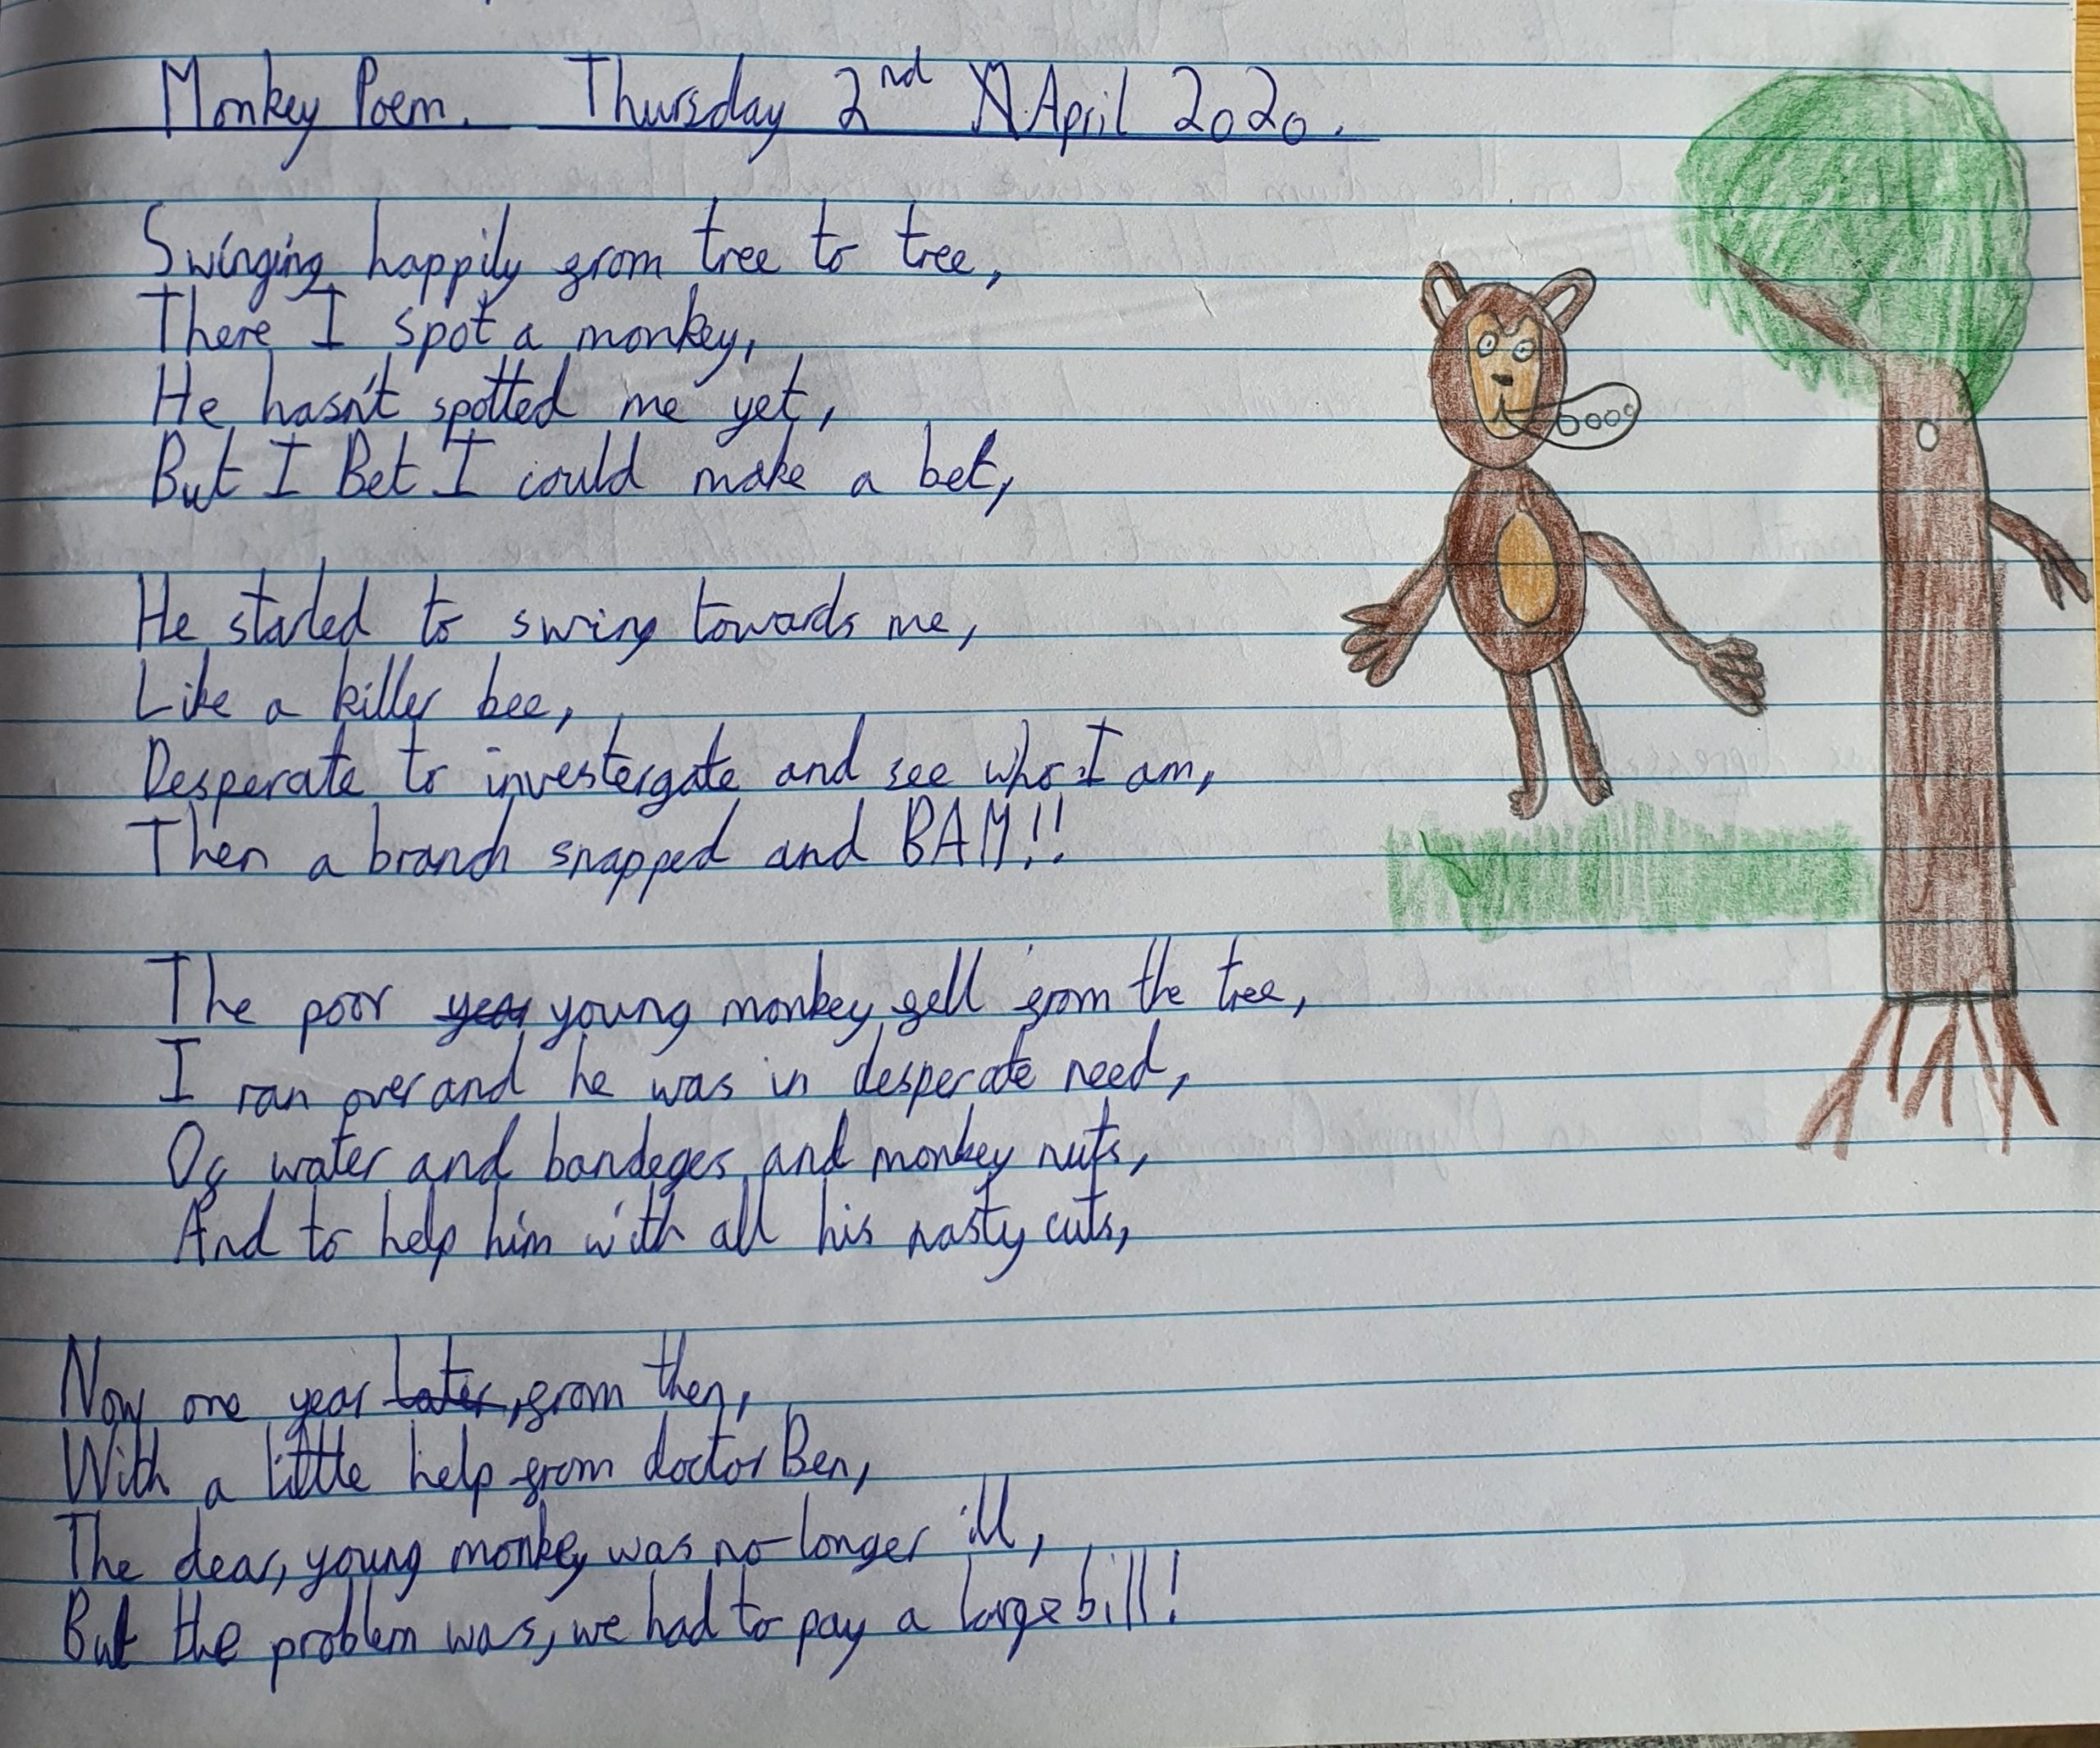 Monkey Poem. Thursday 2nd April 2020.
Swinging happily from tree to tree,
There I spot a monkey,
He hasn't spotted me yet,
But I Bet I could make a bet,
He started to swing towards me,
Like a killer bee,
Desperate to investergate and see who I am,
Then a branch snapped and BAM!!
The poor young monkey fell from the tree,
I ran over and he was in desperate need,
Of water and bandeges and monkey nuts,
And to help him with all his nasty cuts,
Now one year later, from then,
With a little help from doctor Ben,
The dear, young monkey was no longer ill,
But the problem was, we had to pay a large bill!
oooo